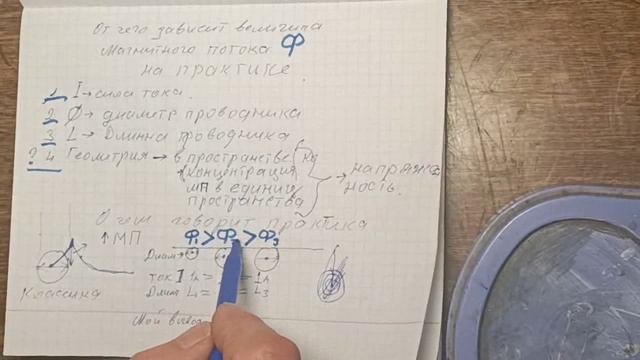 От чего зависит величина
магнитного потока Ф
на практике.
1 I → сила тока.
2 Ø → диаметр проводника
3 L → Длинна проводника
? 4 Геометрия → в пространстве
концентрация
МП в единице
пространства
→ напряжо
ность.
О чем говорит практика
↑ МП
Ф1 > Ф2 > Ф3
Диам →
ток I 1А = 1А
Длин L1 = = L3
Классика
Мой вывод